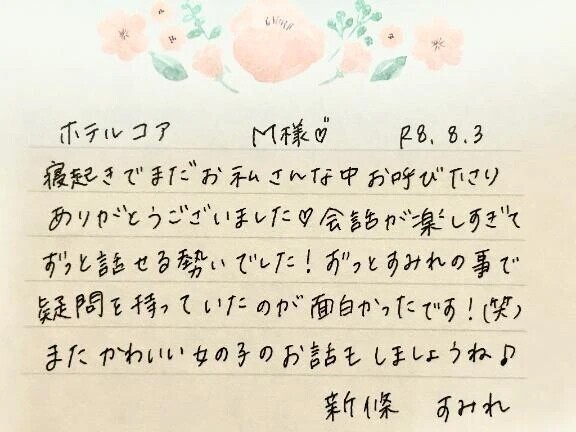 ホテルコア M様♡ R8.8.3
寝起きでまだお私さんな中お呼び下さり
ありがとうございました♡会話が楽しすぎて
ずっと話せる勢いでした!ずっとすみれの事で
疑問を持っていたのが面白かったです!(笑)
またかわいい女の子のお話もしましょうね♪
新條 すみれ